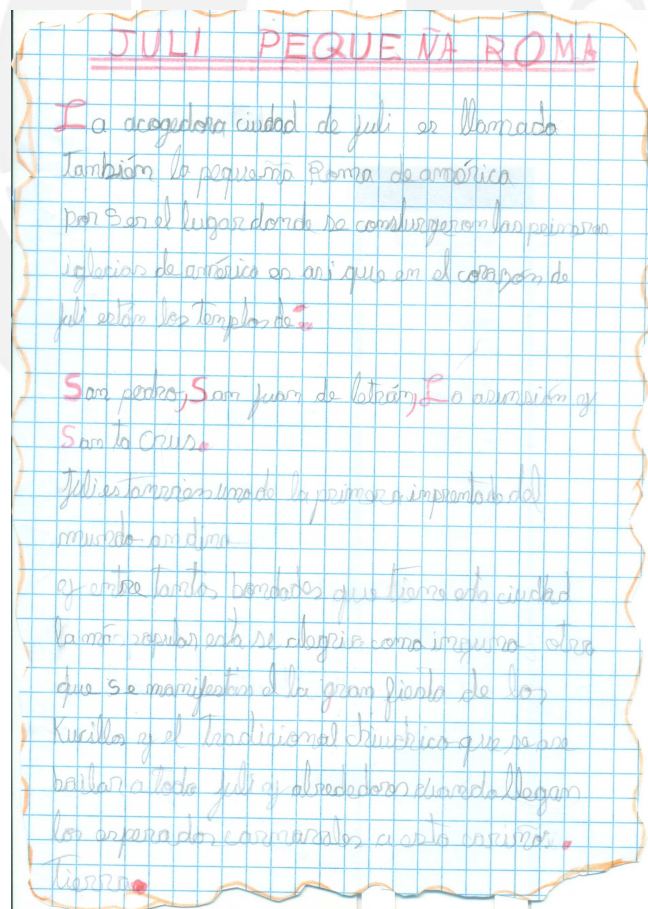 JULI PEQUEÑA ROMA
La acogedora ciudad de juli es llamada
También la pequeña Roma de américa
por Ser el lugar donde se construyeron las primeras
iglecias de américa es asi que en el corazón de
juli están los templos de:
San pedro, San juan de letrán, La asunsión y
Santa Crus.
Juli es tanvien una de la primera imprenta de del
mundo andino
y entre tantas bondades que tiene esta ciudad
la más popular esta su alegria como inguna otra
que se manifestan a la gran fiesta de los
Kucillos y el tradicional chiuchico que se ase
bailar a todo juli y alrededores cuando llegan
los esperados carnavales a esta cariños.
Tierra.